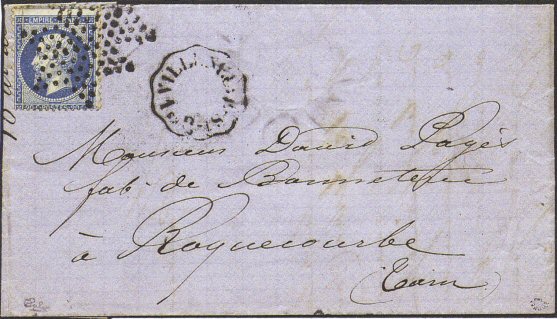 EMPIRE FRANC
Monsieur David Pagès
fab. de Bonneterie
à Roquecourbe
(Tarn)